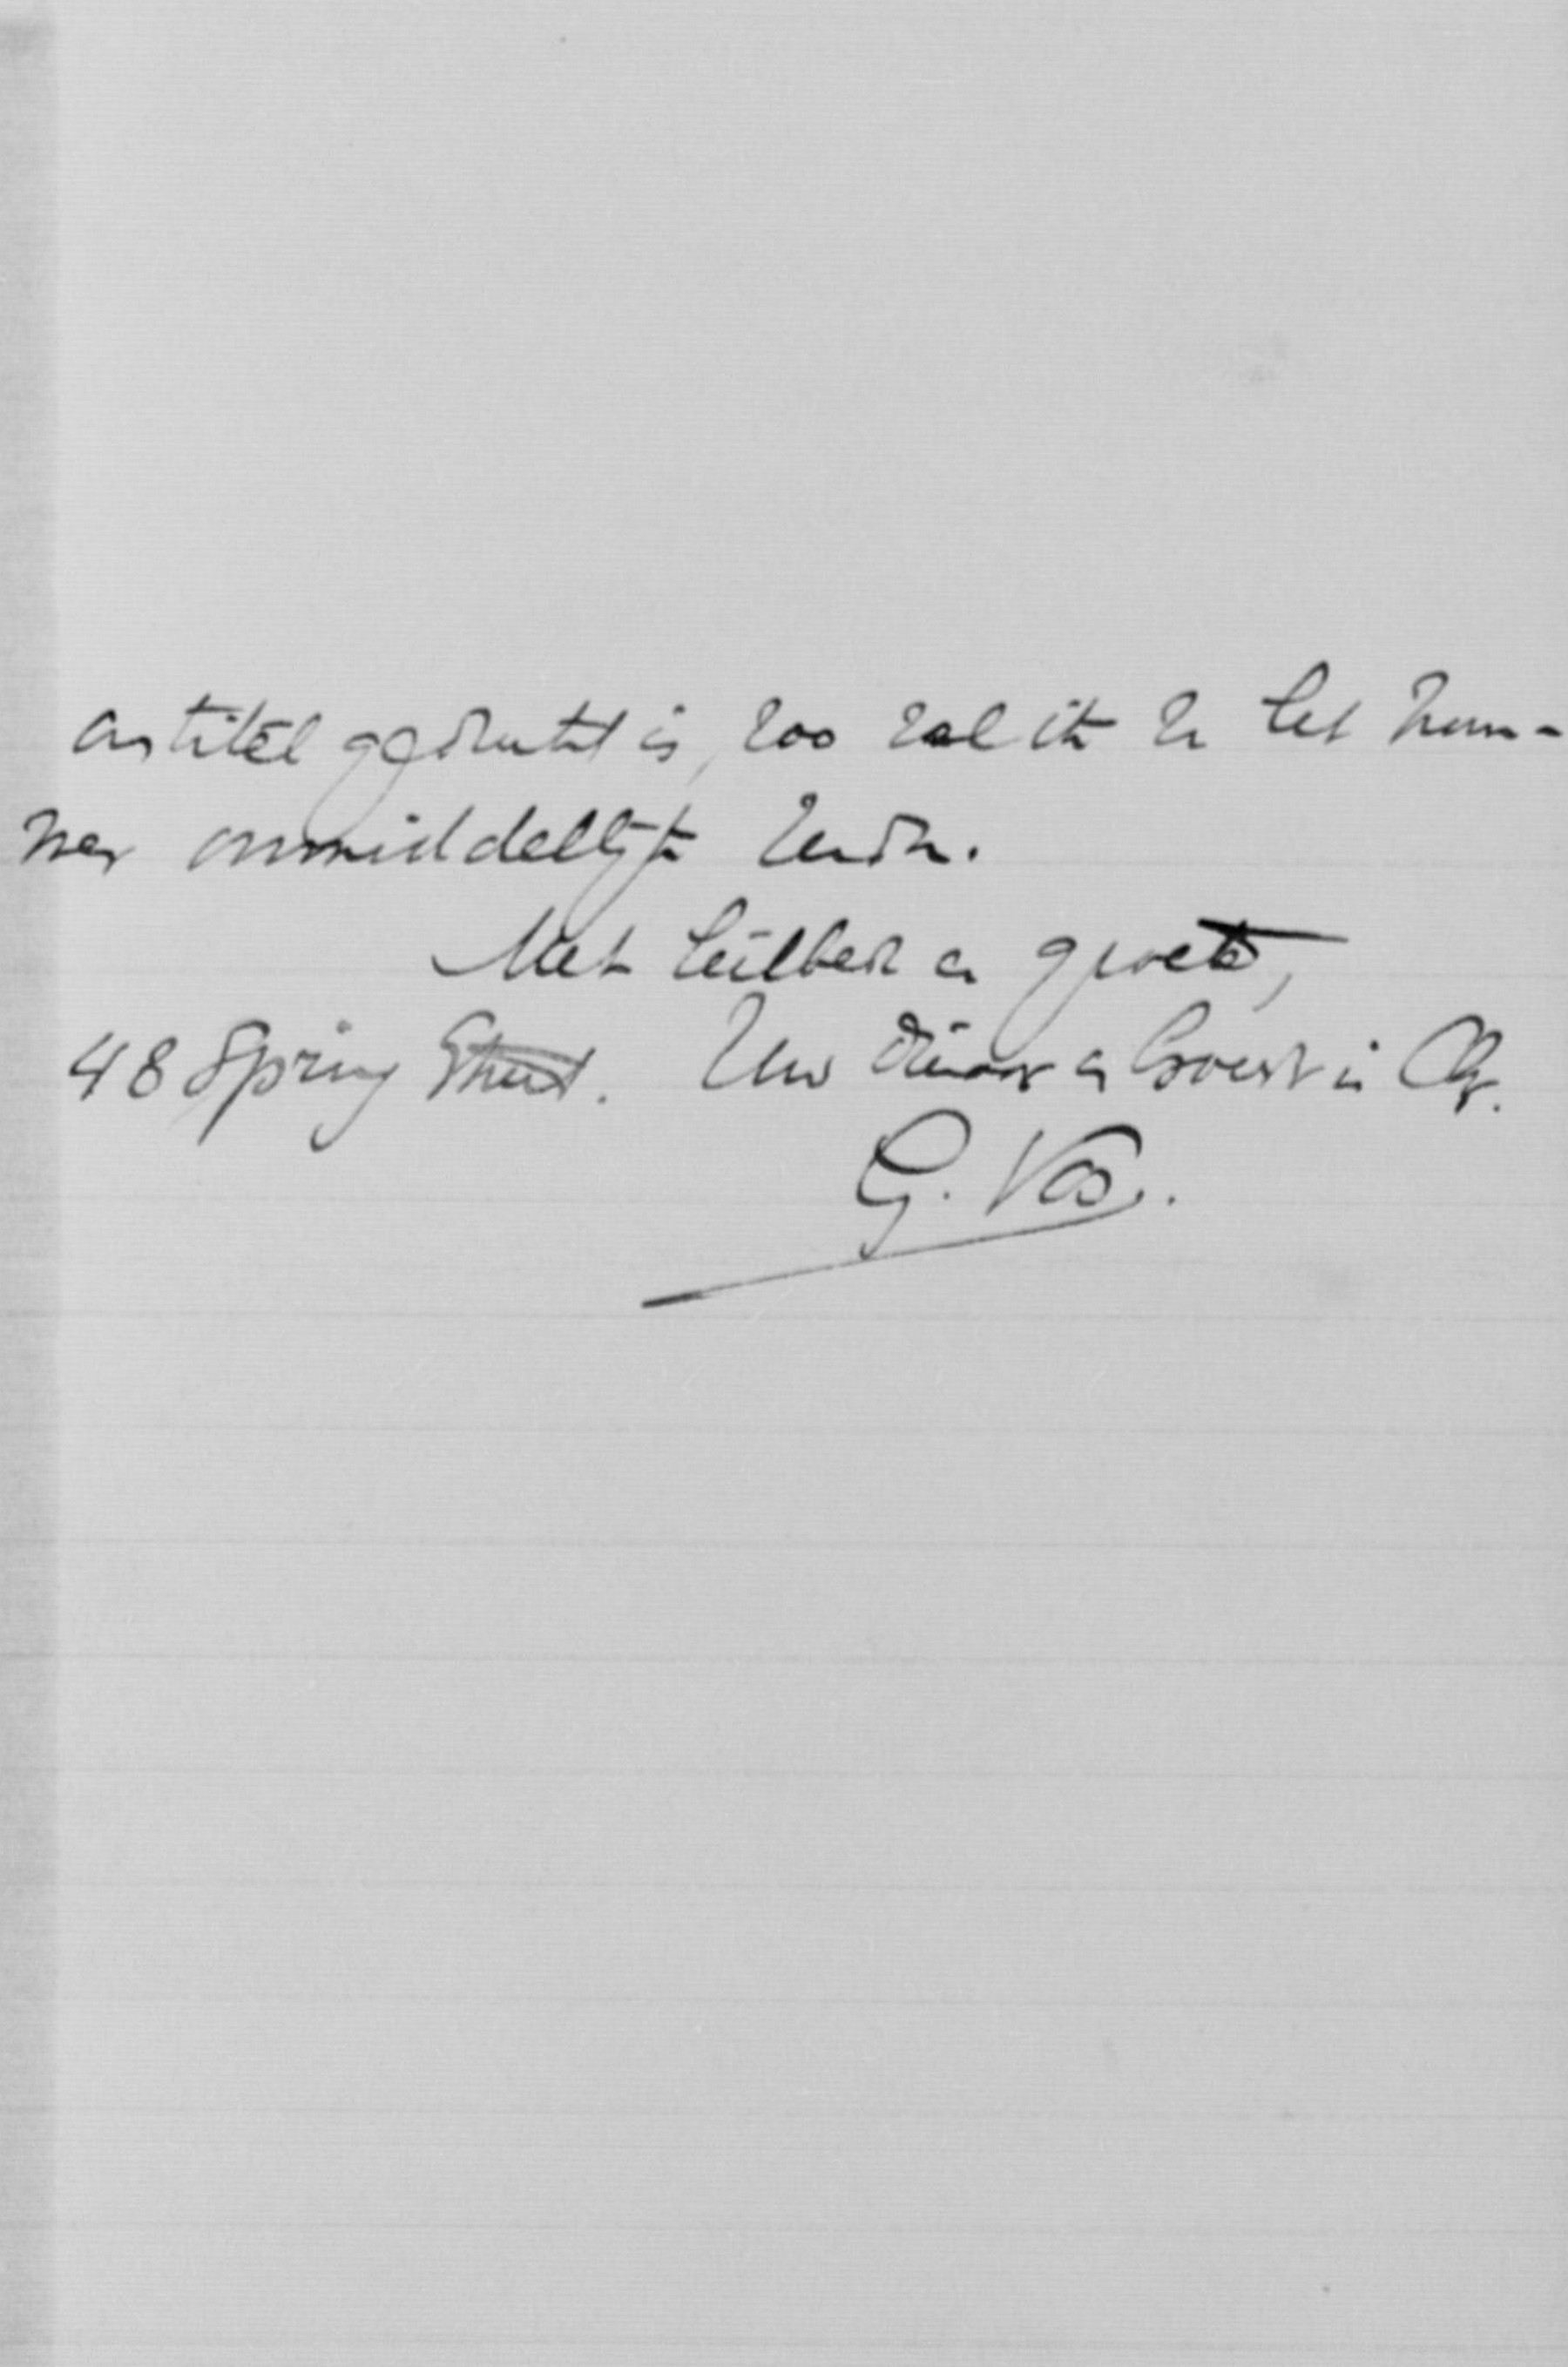 artikel gedrukt is, zoo zal ik U het num-
mer onmiddellijk zenden.
Met heilbede en groete,
48 Spring Street. Uw dienaar en broeder in Chr.
G. Vos.